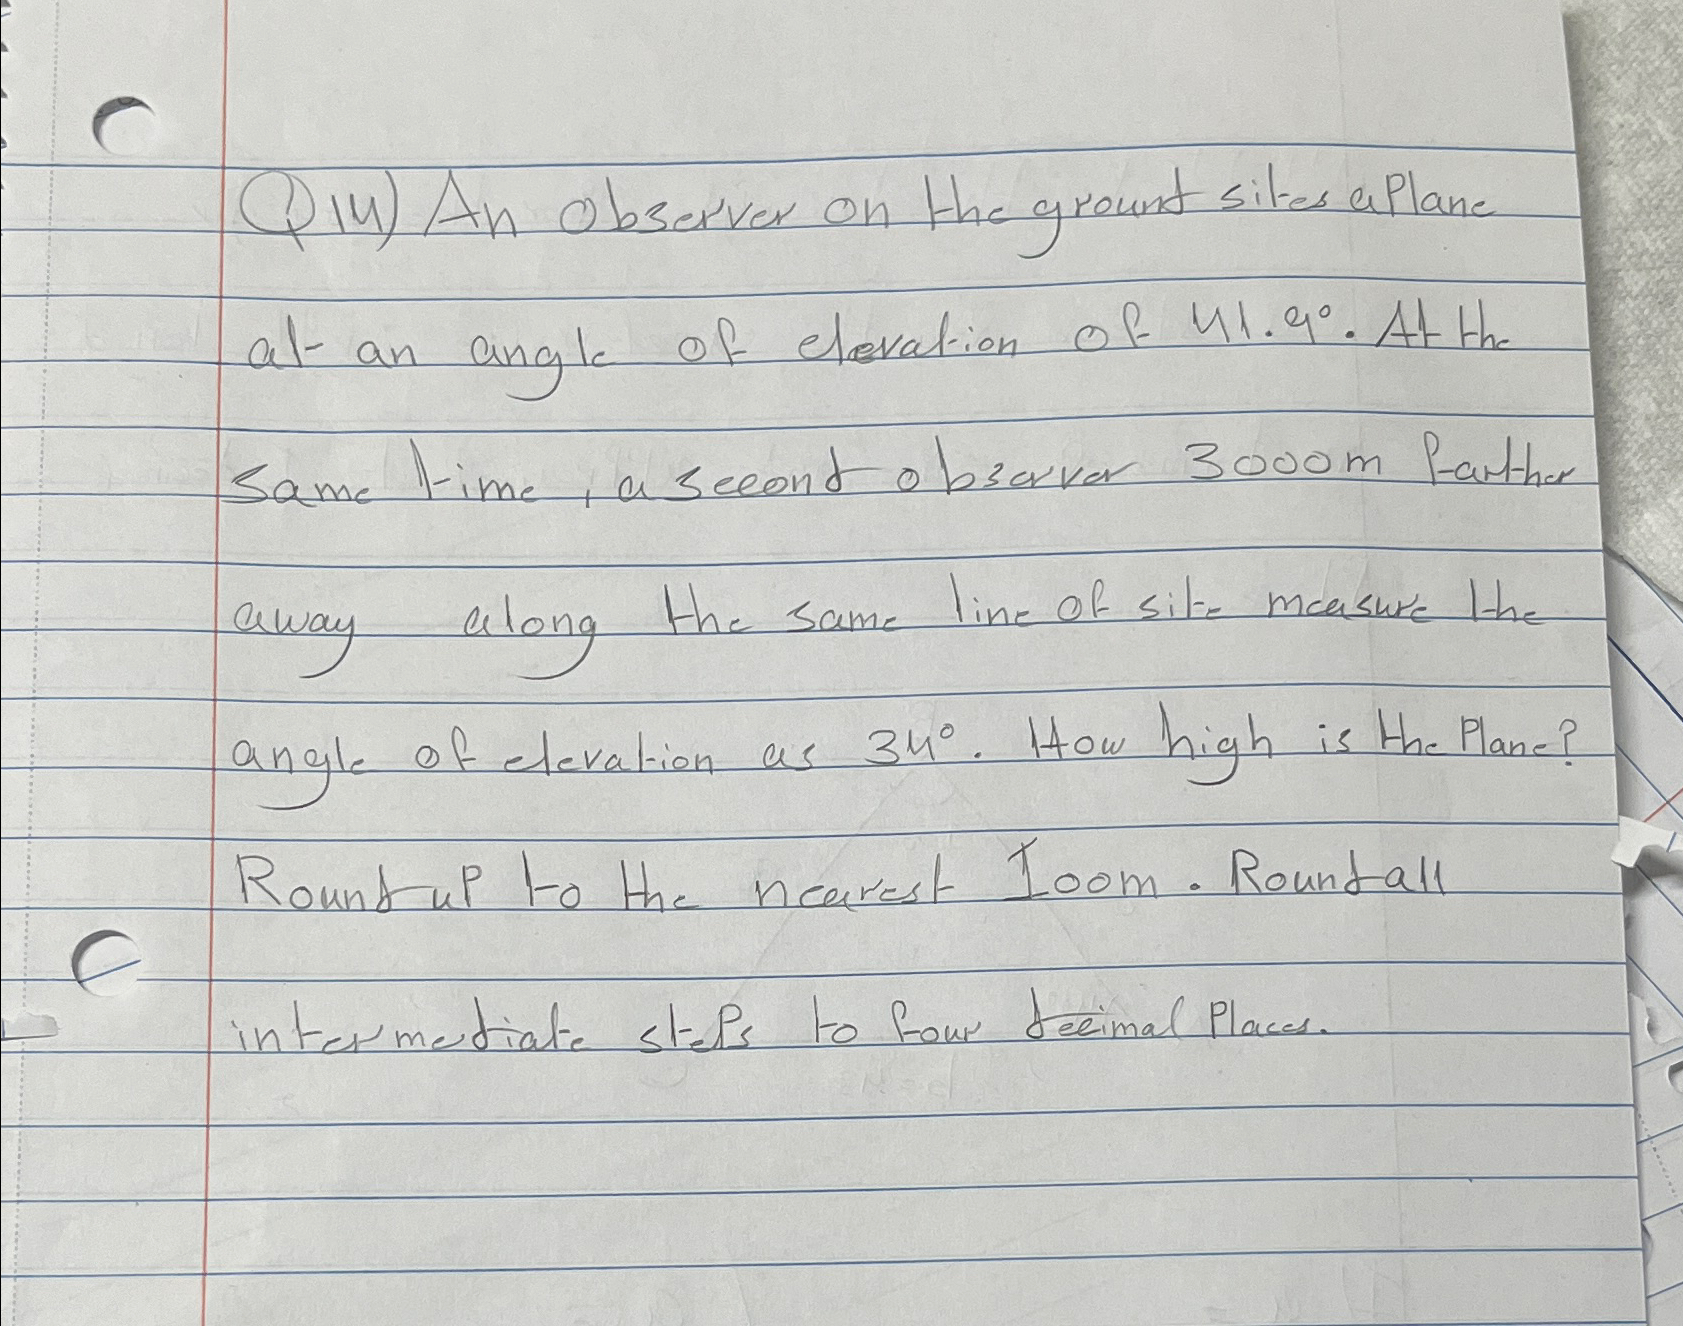 Q14) An observer on the ground sites a Plane
at an angle of elevation of 41.9°. At the
same time, a second observer 3000m farther
away along the same line of site measure the
angle of elevation as 34°. How high is the Plane?
Round up to the nearest 100m. Round all
intermediate steps to four decimal Places.